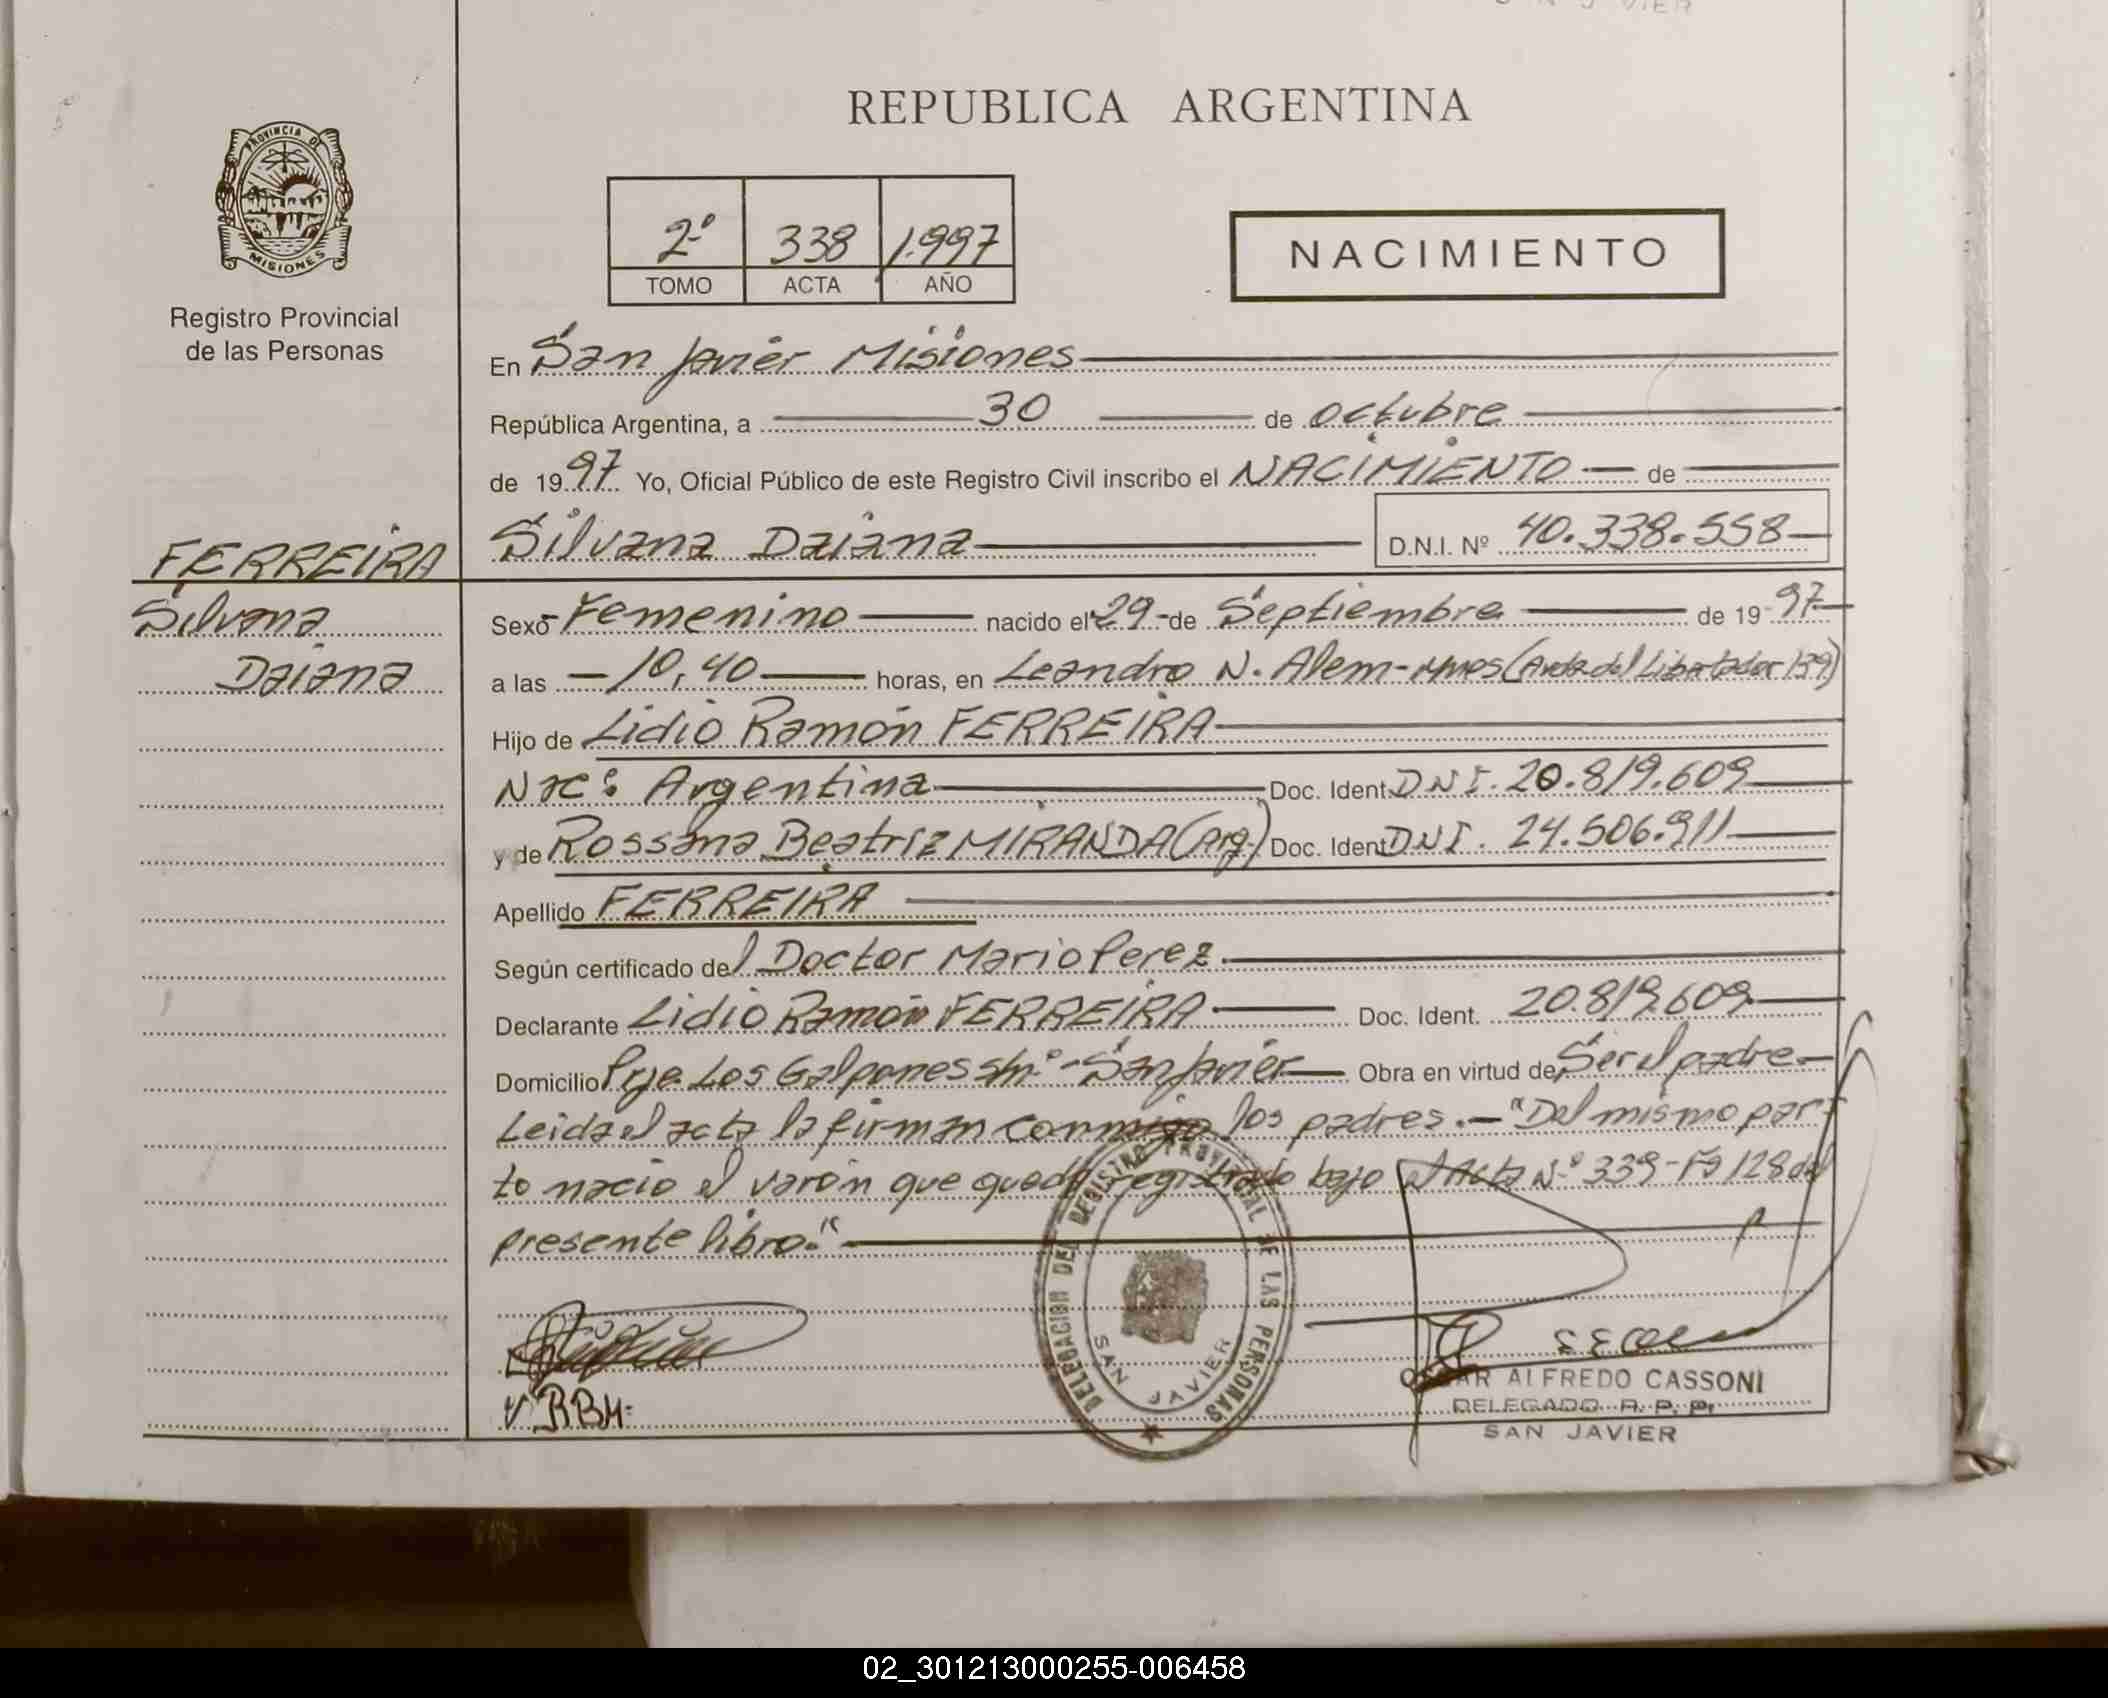 REPUBLICA ARGENTINA
PROVINCIA DE MISIONES
Registro Provincial
de las Personas
2º 338 1.997
TOMO ACTA AÑO
NACIMIENTO
En San Javier Misiones
República Argentina, a 30 de octubre
de 1997 Yo, Oficial Público de este Registro Civil inscribo el NACIMIENTO de
Silvana Daiana D.N.I. Nº 40.338.558
FERREIRA
Silvana
Daiana
Sexo Femenino nacido el 29 de Septiembre de 1997
a las 10,40 horas, en Leandro N. Alem-Mnes (Avda del Libertador 139)
Hijo de Lidio Ramón FERREIRA
Nac: Argentina Doc. Ident. DNI. 20.819.609
y de Rossana Beatriz MIRANDA (Arg.) Doc. Ident. DNI. 24.506.911
Apellido FERREIRA
Según certificado del Doctor Mario Perez
Declarante Lidio Ramón FERREIRA Doc. Ident. 20.819.609
Domicilio Pje. Los Galpones S/nº - San Javier Obra en virtud de Ser el padre
Leida el acta la firman conmigo los padres.- "Del mismo par-
to nacio el varón que quedó registrado bajo el Acta Nº 339-Fº 128 del
presente libro."
R B M.
DELEGACION DEL REGISTRO PROVINCIAL DE LAS PERSONAS
SAN JAVIER
OSCAR ALFREDO CASSONI
DELEGADO R. P. P.
SAN JAVIER
02_301213000255-006458